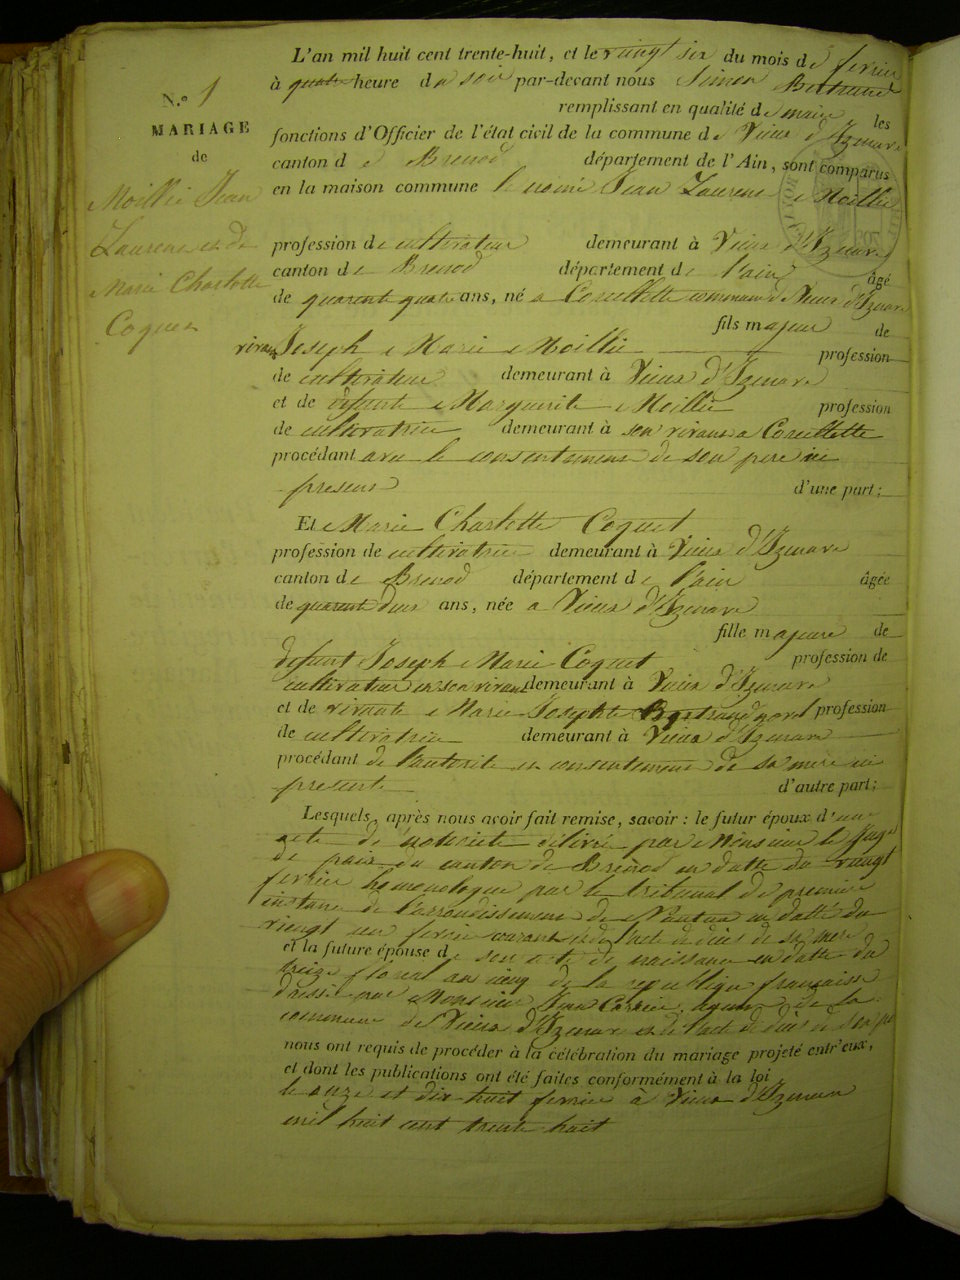 N.o 1
MARIAGE
de
Moillie Jean
Laurent et de
Marie Charlotte
Coquet
L'an mil huit cent trente-huit, et le vingt six du mois de fevrier
à quatre heure du soir par-devant nous Simon Bertrand
remplissant en qualité de maire les
fonctions d'Officier de l'état civil de la commune de Vieux d'Izenave
canton de Brenod département de l'Ain, sont comparus
en la maison commune le nomé Jean Laurent Moillie
profession de cultivateur demeurant à Vieux d'Izenave
canton de Brenod département de l'ain âgé
de quarente quatre ans, né a Corcellette commune de Vieux d'Izenave
fils majeur de
vivant Joseph Marie Moillie profession
de cultivateur demeurant à Vieux d'Izenave
et de défunte Marguerite Moillie profession
de cultivatrice demeurant à son vivant a Corcellette
procédant avec le consentement de son pere ici
present d'une part;
Et Marie Charlotte Coquet
profession de cultivatrice demeurant à Vieux d'Izenave
canton de Brenod département de l'ain âgée
de quarente deux ans, née a Vieux d'Izenave
fille majeure de
defunt Joseph Marie Coquet profession de
cultivateur en son vivant demeurant à Vieux d'Izenave
et de vivante Marie Josephte profession
de cultivatrice demeurant à Vieux d'Izenave
procédant de l'autorité et consentement de sa mere ici
presente d'autre part;
Lesquels, après nous avoir fait remise, savoir: le futur époux d'un
acte de notoriete délivré par Monsieur le Juge
de paix du canton de Brenod en datte du vingt
fevrier homonologue par le tribunal de premiere
instance de l'arrondissement de Nantua en datte du
vingt un fevrier courant et de l'acte de déces de sa mere
et la future épouse de son acte de naissance en datte du
treize floreal an cinq de la republique francaise
dressé par Monsieur Jean Carrier agent de la
commune de Vieux d'Izenave et de l'acte de déces de son pere
nous ont requis de procéder à la célébration du mariage projeté entr'eux,
et dont les publications ont été faites conformément à la loi
le onze et dix huit fevrier à Vieux d'Izenave
mil huit cent trente huit